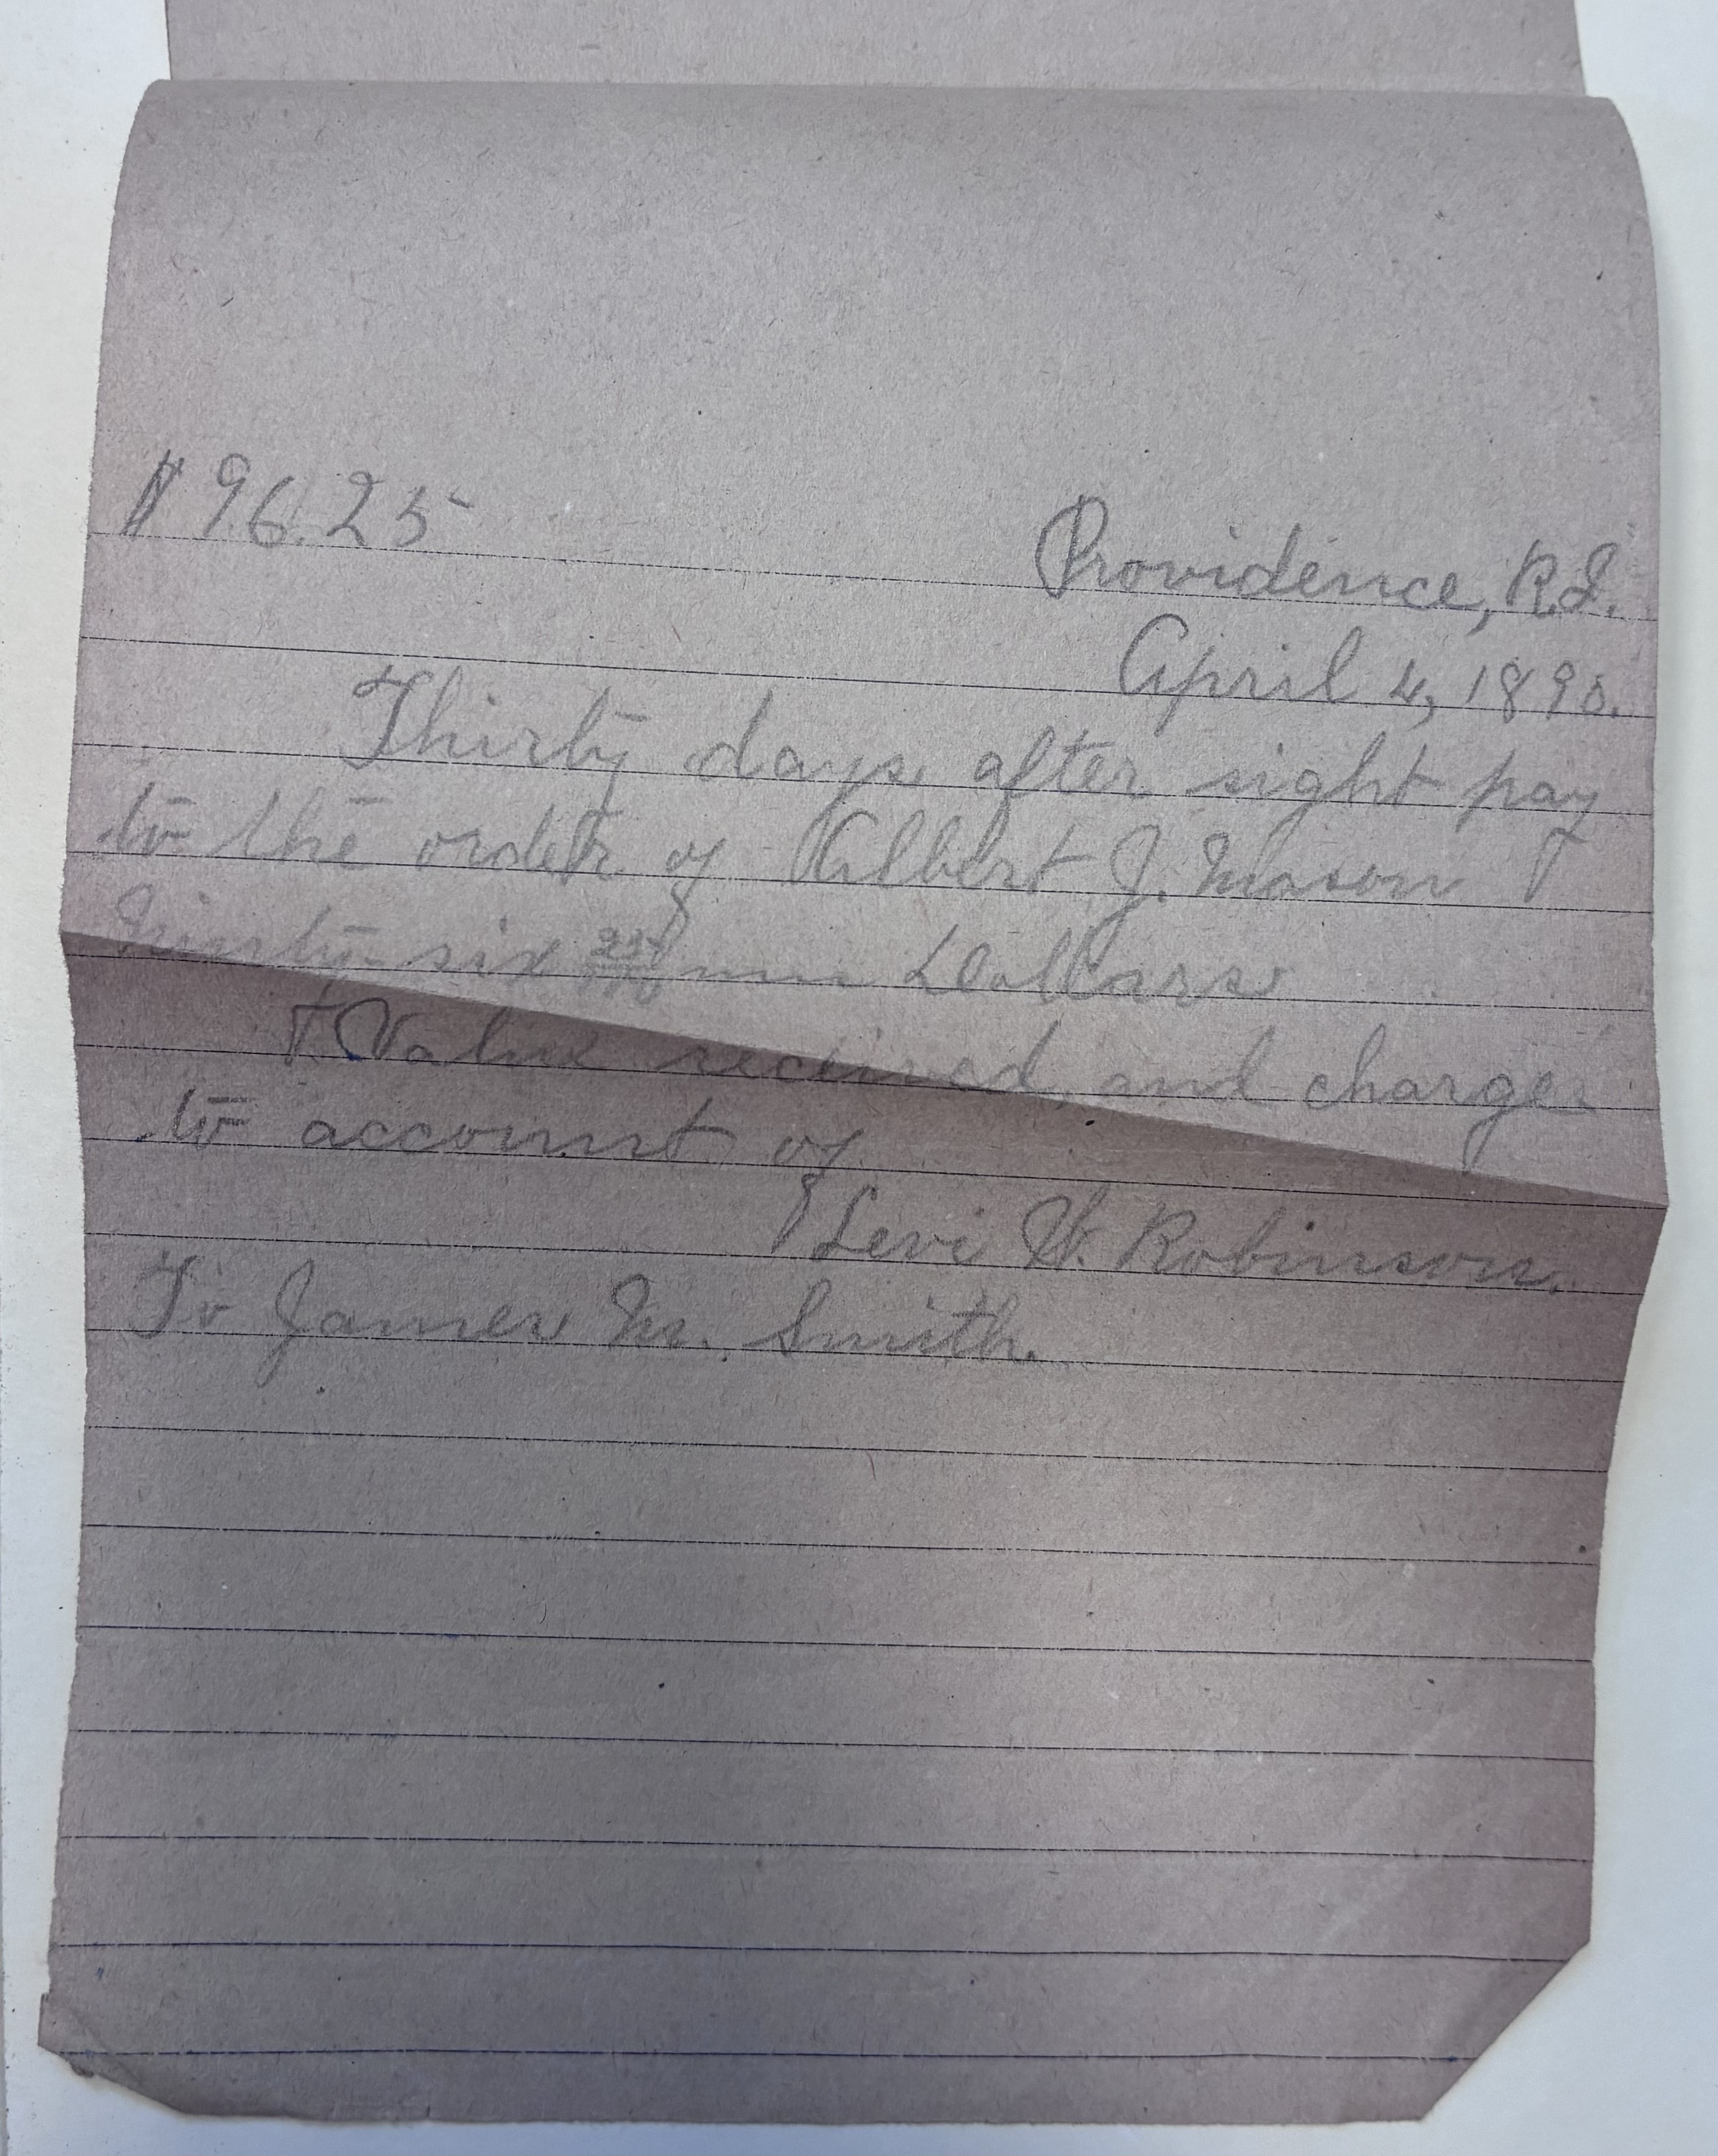 $96.25
Providence, R.I.
April 4, 1890.
Thirty days after sight pay
to the order of Albert J. Mason
Ninety-six 25/100 Dollars
Value received, and charge
to account of
Levi W. Robinson.
To James M. Smith.